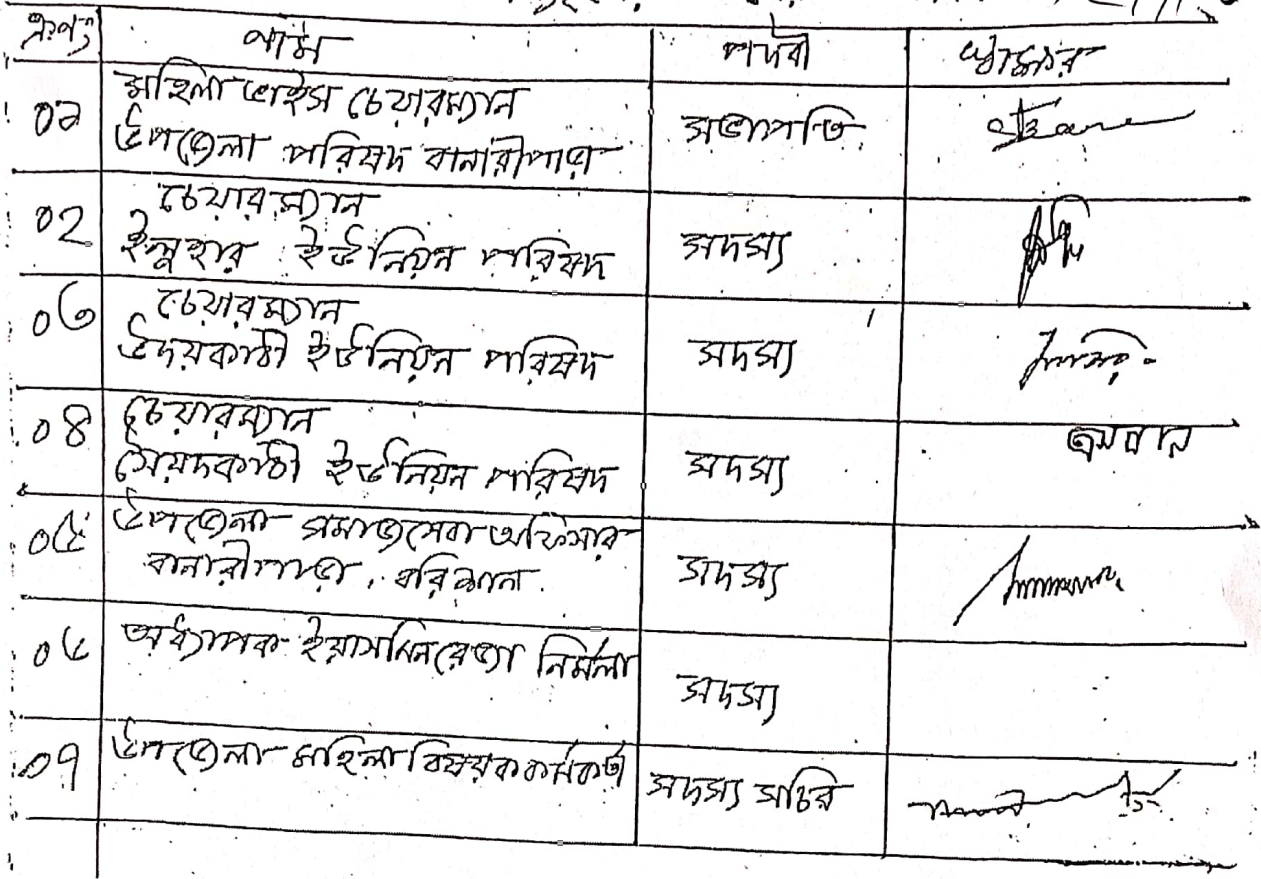 ক্রঃনং নাম পদবী স্বাক্ষর
০১ মহিলা ভাইস চেয়ারম্যান
উপজেলা পরিষদ বানারীপাড়া সভাপতি
০২ চেয়ারম্যান
ইলুহার ইউনিয়ন পরিষদ সদস্য
০৩ চেয়ারম্যান
উদয়কাঠী ইউনিয়ন পরিষদ সদস্য
০৪ চেয়ারম্যান
সৈয়দকাঠী ইউনিয়ন পরিষদ সদস্য
০৫ উপজেলা সমাজসেবা অফিসার
বানারীপাড়া, বরিশাল. সদস্য
০৬ অধ্যাপক নির্মলা
সদস্য
০৭ উপজেলা মহিলা বিষয়ক কর্মকর্তা সদস্য সচিব